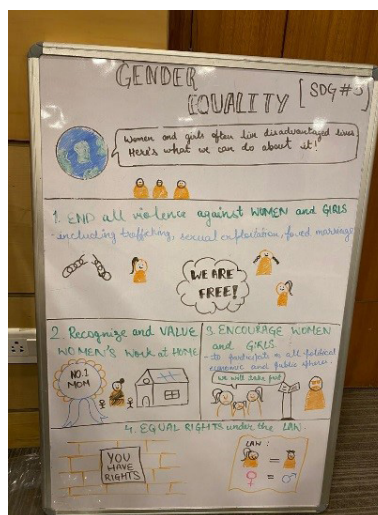 GENDER
EQUALITY [SDG#5]
Women and girls often live disadvantaged lives.
Here's what we can do about it!
1. END all violence against WOMEN and GIRLS
- including trafficking, sexual exploitation, forced marriage
WE ARE
FREE!
2. Recognize and VALUE
WOMEN'S Work at HOME
NO.1
MOM
3. ENCOURAGE WOMEN
and GIRLS
- to participate in all political
economic and public spheres.
We will take part
4. EQUAL RIGHTS under the LAW.
YOU
HAVE
RIGHTS
LAW:
=
♀ = ♂